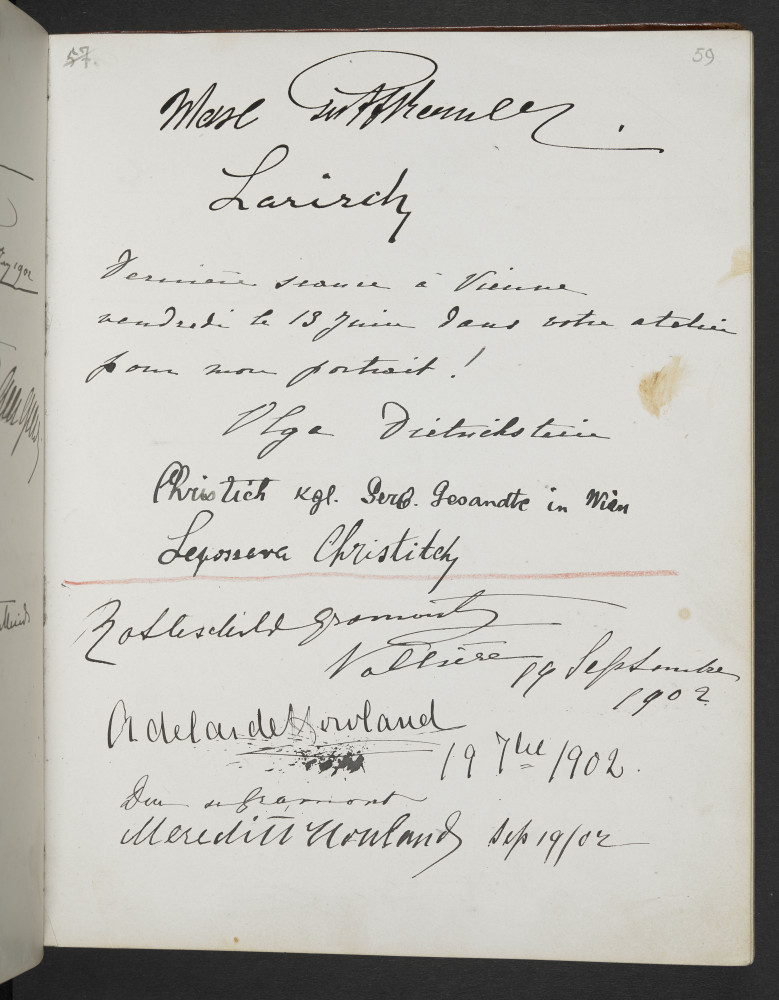 57. 59
Larisch
Dernière séance à Vienne
vendredi le 13 Juin dans votre atelier
pour mon portrait!
Olga Dietrichstein
Christich kgl. Serb. Gesandte in Wien
Lepossava Christitch
Rothschild Gramont
Vallière 19 Septembre
1902
Adelaide Howland
19 7bre/1902.
de Gramont
Meredith Howland Sep 19/02